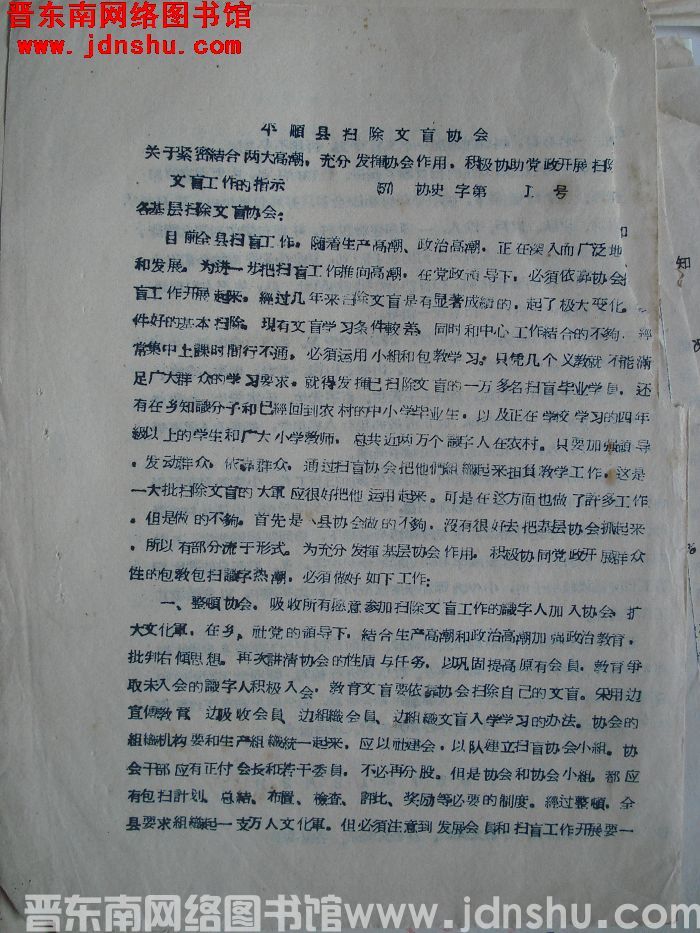 晋东南网络图书馆
www.jdnshu.com
平順县扫除文盲协会
关于紧密結合两大高潮,充分发揮协会作用,积极协助党政开展扫除
文盲工作的指示 (57) 协史字第 1 号
各基层扫除文盲协会:
目前全县扫盲工作,随着生产高潮、政治高潮,正在深入而广泛地
和发展。为进一步把扫盲工作推向高潮,在党政领导下,必須依靠协会
盲工作开展起来。經过几年来扫除文盲是有显著成績的,起了极大变化。
件好的基本扫除。現有文盲学习条件較差,同时和中心工作結合的不夠,經
常集中上課时間行不通。必須运用小組和包教学习。只凭几个义教就不能滿
足广大群众的学习要求。就得发揮已扫除文盲的一万多名扫盲毕业学員,还
有在乡知識分子和已經回到农村的中小学毕业生,以及正在学校学习的四年
級以上的学生和广大小学教师,总共近两万个識字人在农村。只要加强領导
,发动群众,依靠群众,通过扫盲协会把他們組織起来担負教学工作。这是
一大批扫除文盲的大軍应很好把他运用起来。可是在这方面也做了許多工作
,但是做的不夠。首先是县协会做的不夠,沒有很好去把基层协会抓起来
,所以有部分流于形式。为充分发揮基层协会作用,积极协同党政开展群众
性的包教包扫識字热潮,必須做好如下工作:
一、整頓协会,吸收所有愿意参加扫除文盲工作的識字人加入协会,扩
大文化軍,在乡、社党的領导下,結合生产高潮和政治高潮加强政治教育,
批判右傾思想。再次讲清协会的性质与任务,以巩固提高原有会員,教育爭
取未入会的識字人积极入会,教育文盲要依靠协会扫除自己的文盲。采用边
宣傳教育、边吸收会員、边組織会員、边組織文盲入学学习的办法。协会的
組織机构要和生产組織統一起来,应以社建会,以队建立扫盲协会小組。协
会干部应有正付会长和若干委員,不必再分股。但是协会和协会小組,都应
有包扫計划、总結、布置、檢查、評比、奖励等必要的制度。經过整頓,全
县要求組織起一支万人文化軍。但必須注意到发展会員和扫盲工作开展要一
知
晋东南网络图书馆 www.jdnshu.com